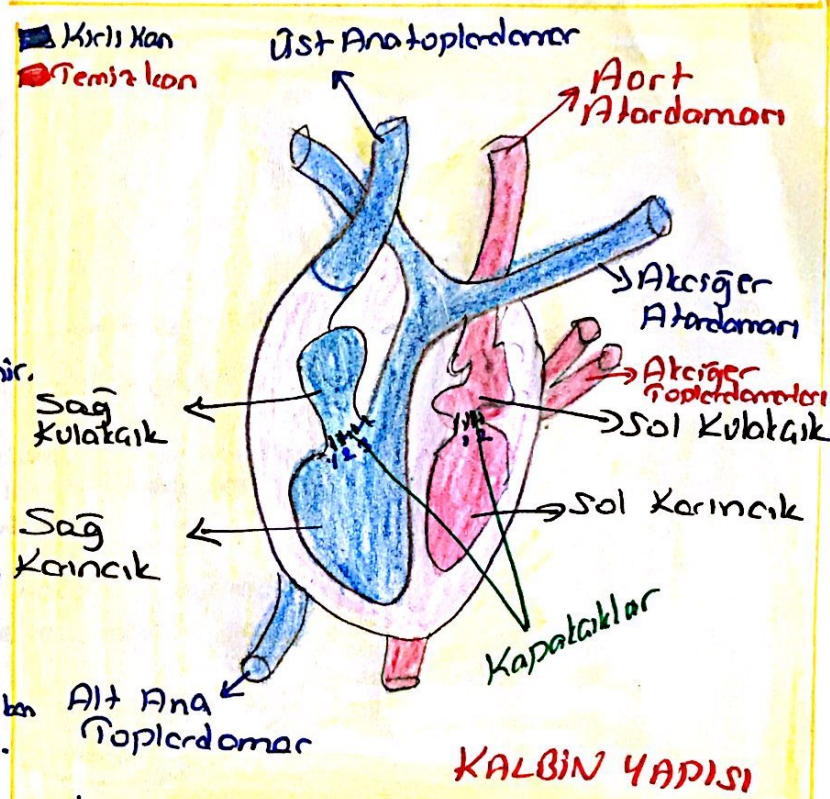 Kirli Kan
Temiz kan
Üst Anatoplardamar
Aort
Atardamarı
Akciğer
Atardamarı
Akciğer
Toplardamarları
Sağ
Kulakçık
Sol Kulakçık
Sağ
Karıncık
Sol Karıncık
1 2 3
1 2
Kapakçıklar
Alt Ana
Toplardamar
KALBİN YAPISI